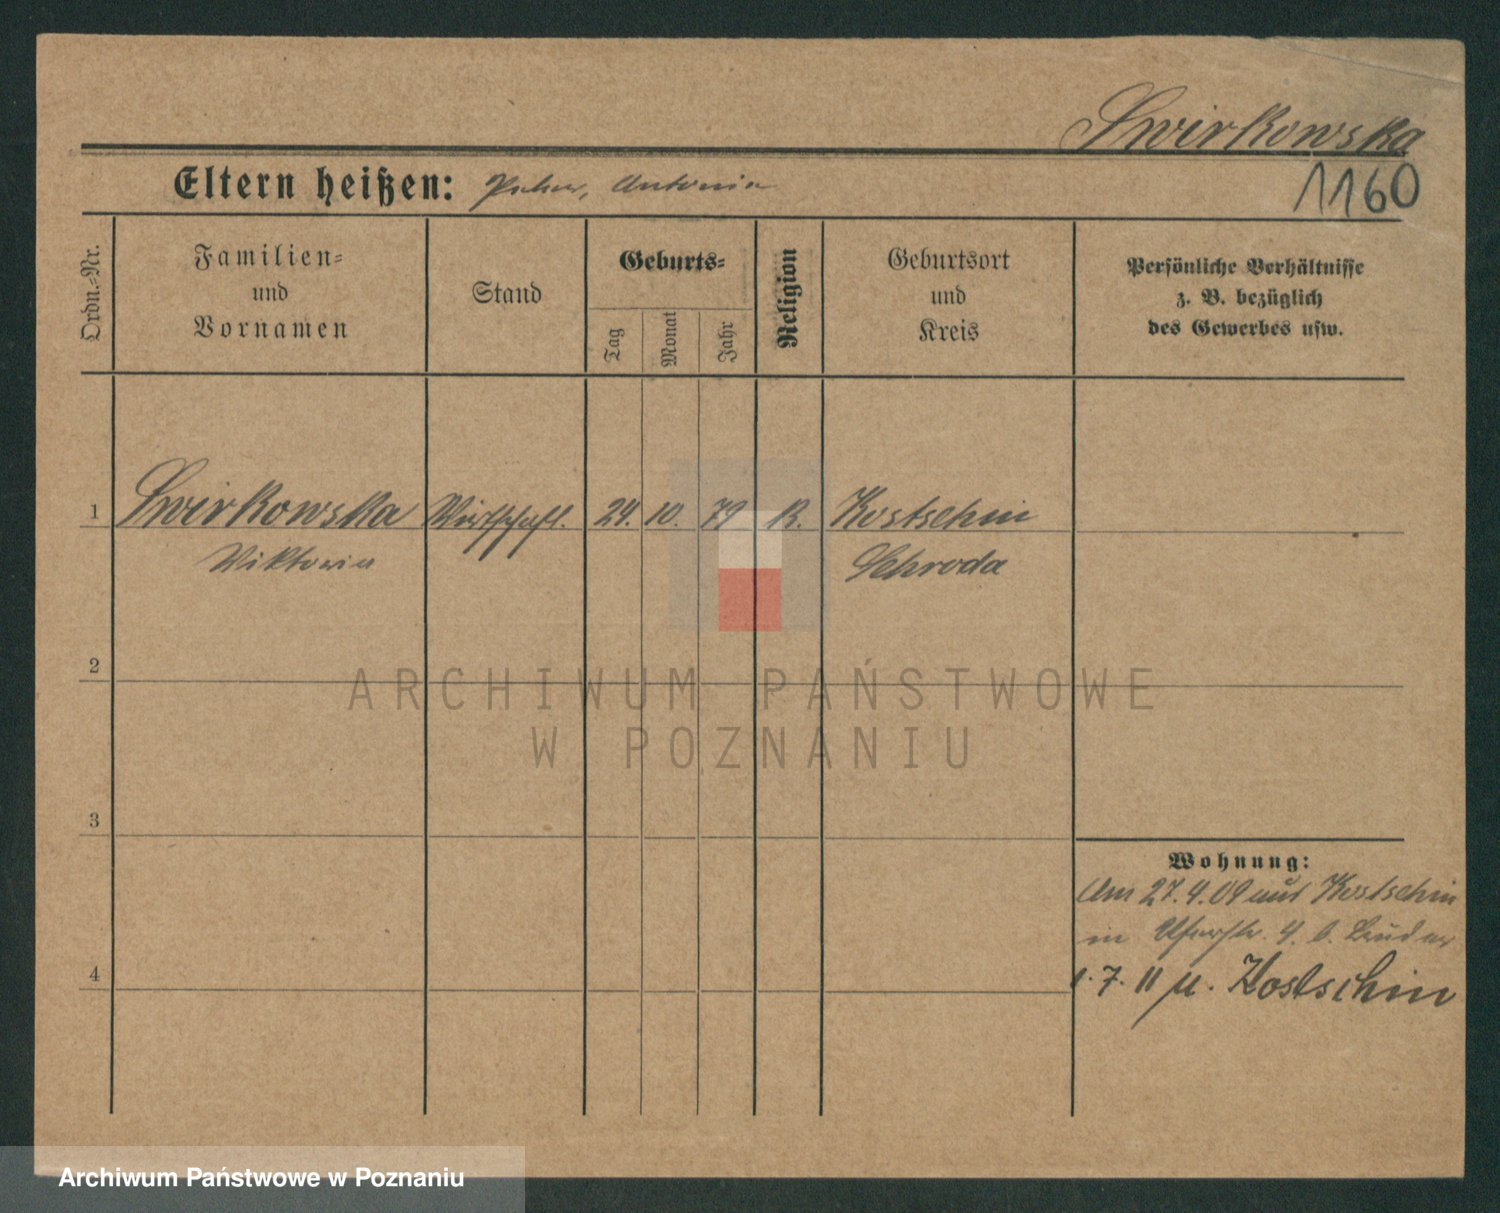 Swirkowska
Eltern heißen: Peter, Antonia
1160
Ordn.-Nr.
Familien- und Vornamen
Stand
Geburts-
Tag
Monat
Jahr
Religion
Geburtsort und Kreis
Persönliche Verhältnisse
z. B. bezüglich
des Gewerbes usw.
1 Swirkowska Wirtschaft. 24. 10. 79 R. Kostschin
Viktoria Schroda
2
ARCHIWUM PAŃSTWOWE
W POZNANIU
3
Wohnung:
Am 27.4.09 aus Kostschin
in 4. b.
4
1.7.11 n. Kostschin
Archiwum Państwowe w Poznaniu